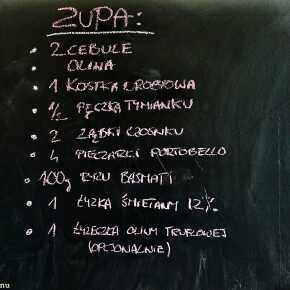 ZUPA:
• 2 CEBULE
OLIWA
• 1 KOSTKA DROBIOWA
• 1/2 PĘCZKA TYMIANKU
• 2 ZĄBKI CZOSNKU
• 4 PIECZARKI PORTOBELLO
• 100g RYŻU BASMATI
• 1 ŁYŻKA ŚMIETANY 12%
• 1 ŁYŻECZKA OLIWY TRUFLOWEJ
(OPCJONALNIE)